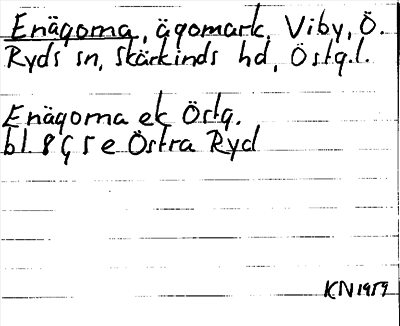 Enägorna, ägomark, Viby, Ö.
Ryds sn, Skärkinds hd, Östg.l.
Enägorna ek Östg.
bl. 8 Ç 5 e Östra Ryd
KN 1959